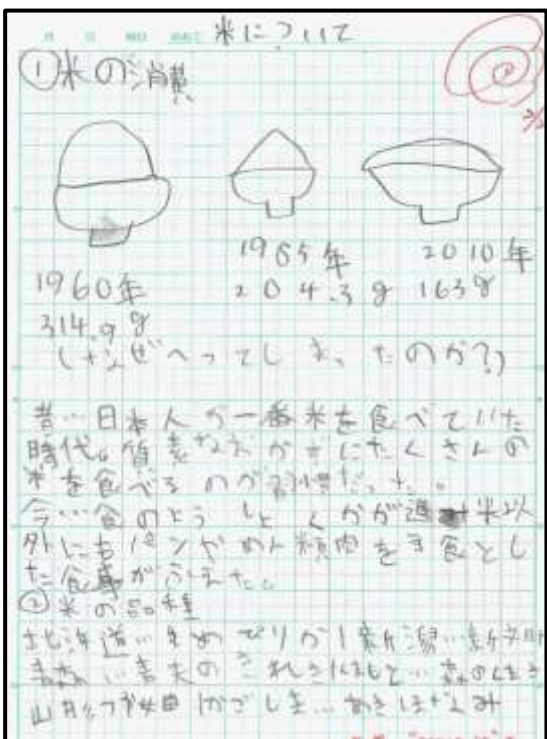 米について
①米の消費
1965年 2010年
1960年 204.3g 163g
314.9g
なぜへってしまったのか?
昔…日本人が一番米を食べていた
時代。質素なおかずにたくさんの
米を食べるのが習慣だった。
今…食のよう しょくかが進 米以
外にもパンやめん類肉を主食とし
た食事がふえた。
②米の品種
北海道…きめ 新潟…新
青森…青天の
山形…つや姫 かごしま…あきほなみ